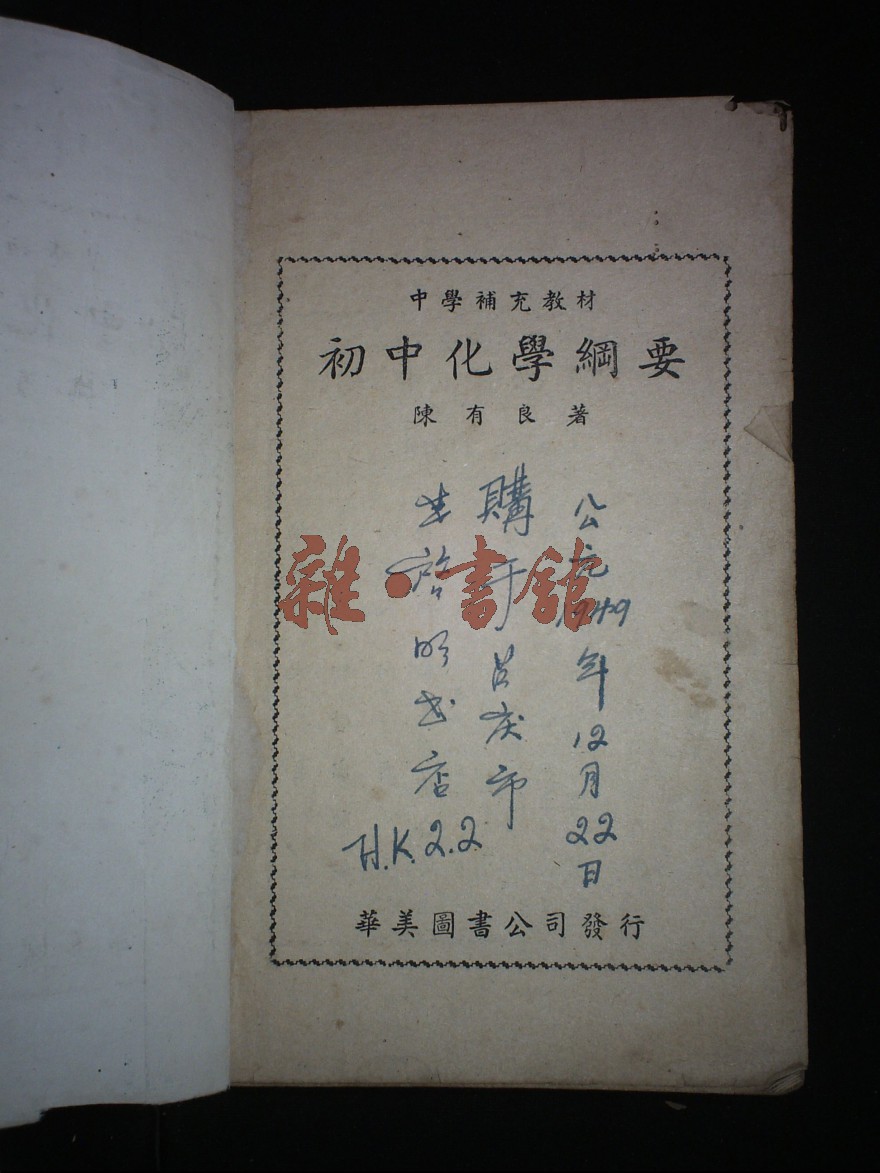 中學補充教材
初中化學綱要
陳有良著
公元1949年12月22日
購于昌庆市
啓明书店
H.K.2.2
華美圖書公司發行
雜·書館